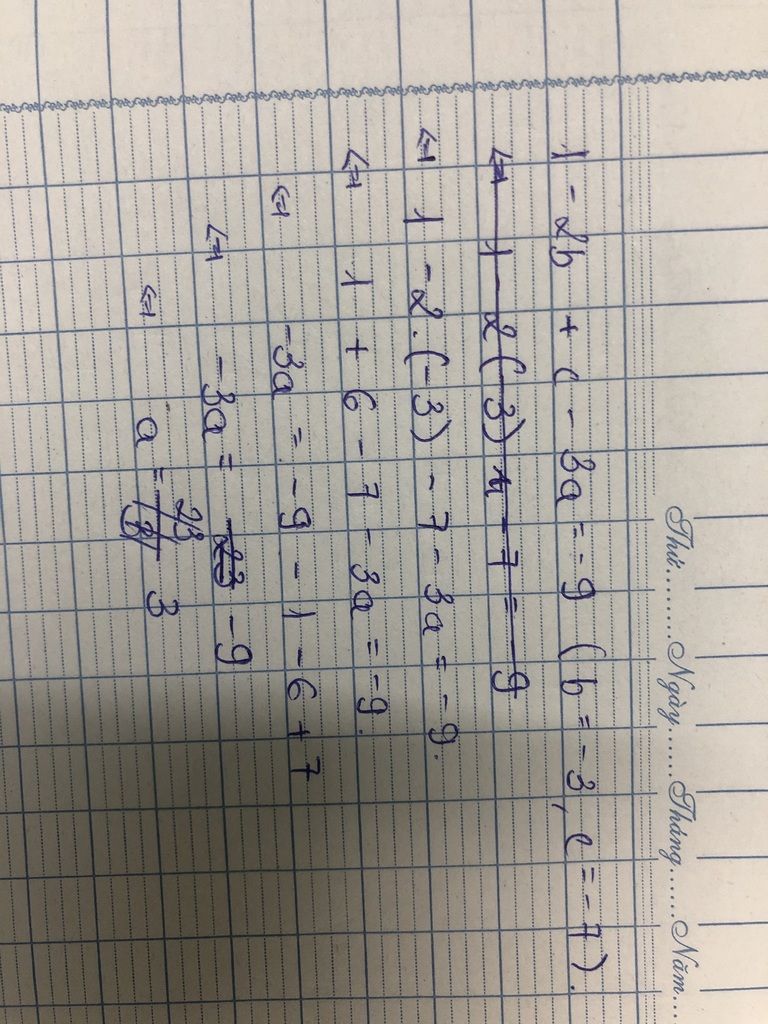 Thứ........Ngày.......Tháng......Năm...
1 - 2b + c - 3a = -9 (b = -3, c = -7).
<=> 1 - 2(-3) - 7 = -9
<=> 1 - 2.(-3) - 7 - 3a = -9.
<=> 1 + 6 - 7 - 3a = -9.
<=> -3a = -9 - 1 - 6 + 7
<=> -3a = -9
<=> a = 3